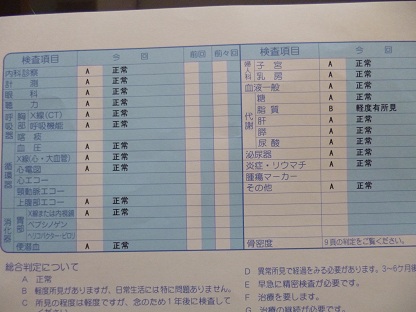 検査項目 今回 前回 前々回
内科診察 A 正常
計測 A 正常
眼科 A 正常
聴力 A 正常
呼吸器 胸部 X線(CT) A 正常
呼吸機能 A 正常
喀痰
循環器 血圧 A 正常
X線(心・大血管) A 正常
心電図 A 正常
心エコー
頸動脈エコー
消化器 上腹部エコー A 正常
胃部 X線または内視鏡 A 正常
ペプシノゲン
ヘリコバクター・ピロリ
便潜血 A 正常
検査項目 今回
婦人科 子宮 A 正常
乳房 A 正常
血液一般 A 正常
代謝 糖 A 正常
脂質 B 軽度有所見
肝 A 正常
膵 A 正常
尿酸 A 正常
泌尿器 A 正常
炎症・リウマチ A 正常
腫瘍マーカー
その他 A 正常
骨密度 9頁の判定をご覧ください。
総合判定について
A 正常
B 軽度所見がありますが、日常生活には特に問題ありません。
C 所見の程度は軽度ですが、念のため1年後に検査して
ください。
D 異常所見で経過をみる必要があります。3~6ケ月後
E 早急に精密検査が必要です。
F 治療を要します。
G 治療の継続が必要です。